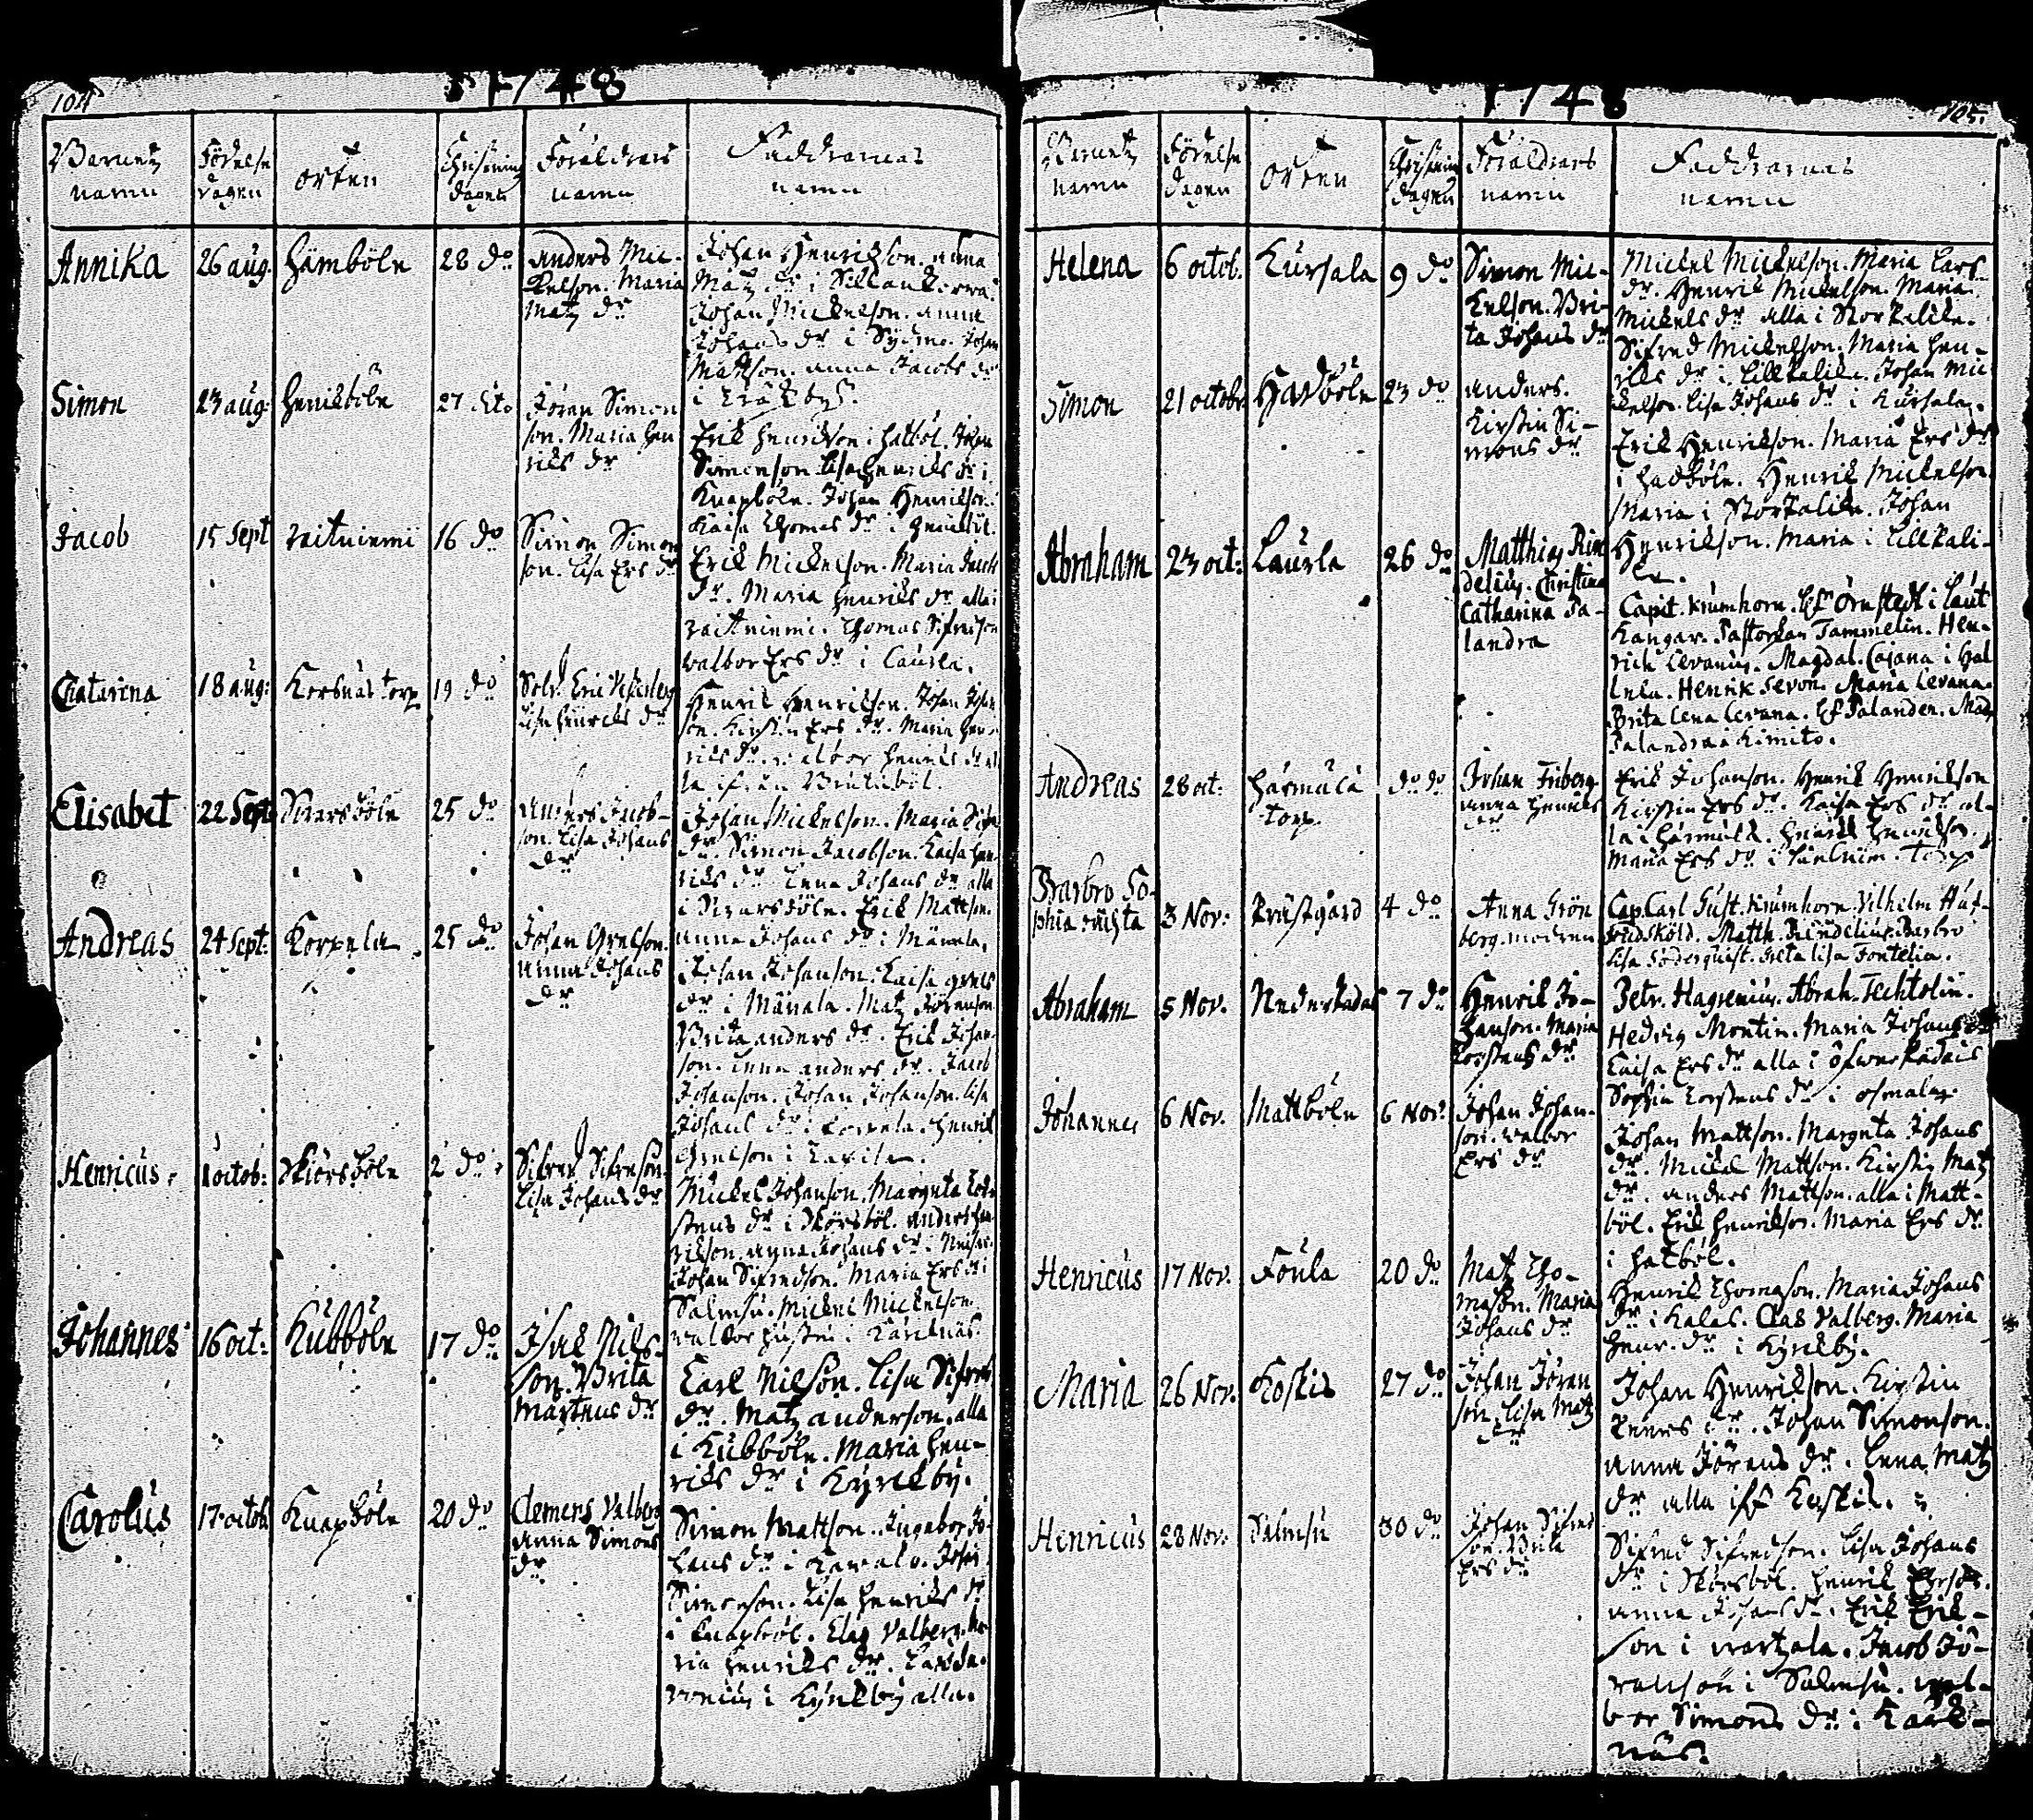 104
1748
Barnetz
namn
Födelse
dagen
orten
Christning
dagen
Föräldrars
namn
Faddrarnas
namn
Annika
26 aug.
Hämböle
28 do
Anders Mic-
kelson. Maria
Matz dr
Johan Henrikson. anna
Matz dr i
Johan Mickelson. anna
Johans dr i Sydmo. Johan
Mattson. anna Jacobs dr
i
Simon
23 aug:
Henriksböle
27
Jöran Simon
son. Maria Hen
riks dr
Erik Henrikson i Hatböl. Johan
Simonson Lisa Henriks dr i
Knapböle. Johan Henrikson.
Kaisa Thomas dr i
Jacob
15 Sept
Vaitniemi
16 do
Simon Simon
son. Lisa Ers dr
Erik Mickelson. Maria Jacobs
dr. Maria Henriks dr alla i
Vaitniemi. Thomas Sifredson
Valbor Ers dr i Laurla.
Catarina
18 aug:
Korsnäs torp
19 do
Sold. Eric
Lisa Henriks dr
Henrik Henrikson. Johan Johan
son. Kirstin Ers dr. Maria Hen-
riks dr. Valbor Henriks dr al
la ifrån
Elisabet
22 Sept
25 do
Anders Jacob-
son. Lisa Johans
dr
Johan Mickelson. Maria Sifr
dr. Simon Jacobson. Kaisa Hen
riks dr Lena Johans dr alla
i Erik Mattson.
anna Johans dr i Mänala.
Andreas
24 Sept:
Korpela
25 do
Johan Grelson.
Anna Johans
dr
Johan Johanson. Kaisa Grels
dr i Mänala. Matz Jöranson
Brita anders dr. Erik Johan
son. Lena anders dr. Jacob
Johanson. Johan Johanson. Lisa
Johans dr i Korpela. Henrik
Grelson i
Henricus
1 octob:
Skörsböle
2 do
Sifred Sifredson.
Lisa Johans dr
Mickel Johanson. Margeta Tor
stens dr i Skörsböl. Anders Hen
rikson. anna Johans dr i
Johan Sifredson. Maria Ers dr i
Salmsu. Mickel Mickelson.
Valbor i Kärknäs.
Johannes
16 oct:
Kubböle
17 do
Isak Nils-
son. Brita
Mårtens dr
Carl Nilson. Lisa Sifreds
dr. Matz anderson. alla
i Kubböle. Maria Hen-
riks dr i Kyrckby.
Carolus
17 octob.
Knapböle
20 do
Clemens Valberg
Anna Simons
dr.
Simon Mattson. Ingebor Jo-
hans dr i Johan
Simonson. Lisa Henriks dr
i Knapböl. Clas Valberg. Ma
ria Henriks dr.
i Kyrckby alla.
1748
105.
Barnetz
namn
Födelse
dagen
orten
Christning
dagen
Föräldrars
namn
Faddrarnas
namn
Helena
6 octob.
Kursala
9 do
Simon Mic-
kelson. Bri-
ta Johans dr
Mickel Mickelson. Maria Lars
dr. Henrik Mickelson. Maria
Mickels dr alla i Storkalila.
Sifred Mickelson. Maria Hen-
riks dr i Lillkalila. Johan Mic
kelson. Lisa Johans dr i Kursala.
Simon
21 octobr
Hadböle
23 do
Anders.
Kirstin Si-
mons dr
Erik Henrikson. Maria Ers dr
i Hadböle. Henrik Mickelson
Maria i Storkalila. Johan
Henrikson. Maria i Lillkali-
la.
Abraham
23 oct:
Laurla
26 do
Matthias Rin
delius. Christina
Catharina Pa-
landra
Capit. Krumhorn. Örnstedt i Laut
kangar. Pastorskan Tammelin. Hen-
rich Levanus. Magdal. Cajana i Hal
lela. Henrik Sevon. Maria Levana.
Brita Lena Levana. Palander. Mad
Palandra i Kimito.
Andreas
28 oct:
Härmälä
torp.
do do
Johan Friberg
Anna Henriks
dr
Erik Johanson. Henrik Henrikson
Kirstin Ers dr. Kaisa Ers dr al-
la i Härmälä. Henrik Henrikson.
Maria Ers dr i torp
Barbro So-
phia
3 Nov:
Prästgård
4 do
Anna Grön
berg. modren
Cap. Carl Gust. Krumhorn. Vilhelm
Matth. Rindelius. Barbro
Lisa Söderquist. Greta Lisa Fontelia.
Abraham
5 Nov.
Nederkådas
7 do
Henrik Jo-
hanson. Maria
Torstens dr
Petr. Hagrenius. Abrah. Techtolin.
Hedvig Montin. Maria Johans dr
Caisa Ers dr alla i Öfwerkådais
Sophia Torstens dr i
Johannes
6 Nov.
Mattböle
6 Nov:
Johan Johan-
son. Valbor
Ers dr
Johan Mattson. Margeta Johans
dr. Mickel Mattson. Kirstin Matz
dr. anders Mattson. alla i Matt-
böl. Erik Henrikson. Maria Ers dr
i Hatböl.
Henricus
17 Nov.
Toula
20 do
Matz Tho-
mason. Maria
Johans dr
Henrik Thomason. Maria Johans
dr i Kalas. Clas Valberg. Maria
Henr. dr i Kyrckby.
Maria
26 Nov.
Koskis
27 do
Johan Jöran
son. Lisa Matz
dr
Johan Henrikson. Kirstin
dr. Johan Simonson.
Anna Jörans dr. Lena Matz
dr alla
Henricus
28 Nov.
Salmsu
30 do
Johan Sifred
son. Brita
Ers dr
Sifred Sifredson. Lisa Johans
dr i Skörsböl. Henrik
anna Johans dr. Erik Erik-
son i Jacob Jö-
ranson i Salmsu. Val-
bor Simons dr i Kärk-
näs.